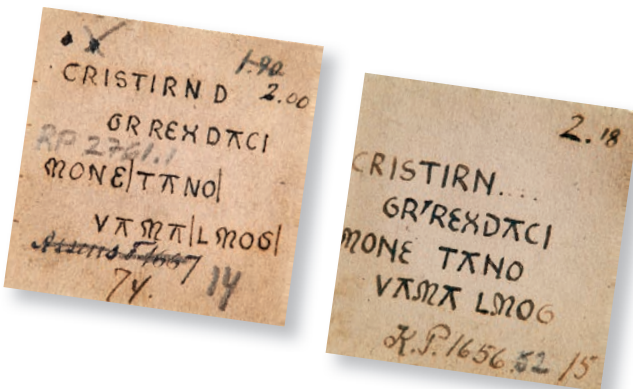 1.90
CRISTIRN D 2.00
GR REX DACI
RP 2761.1
MONE|TANO|
VAMA|LMOG|
74. 14
2.18
CRISTIRN....
GR'REXDACI
MONE TANO
VAMA LMOG
K.P. 1656.52 15